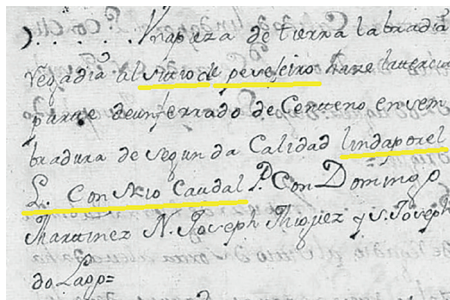 Una pieza de tierra labradia
regadia al sitio de pereseiro hace la tercera
parte de un ferrado de Centeno en sem
bradura de segunda Calidad linda por el
L. Con Rio Caudal P. Con Domingo
Martinez N. Joseph Miguez y S. Joseph
do Lago=